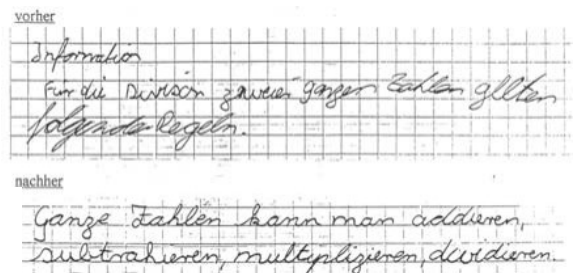 vorher
Information
Für die Divison zweier ganzen Zahlen gllten
folgende Regeln.
nachher
Ganze Zahlen kann man addieren,
subtrahieren, multiplizieren, dividieren.